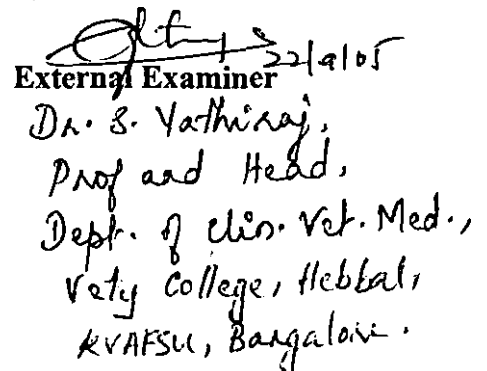 22/9/05
External Examiner
Dr. S. Yathiraj,
Prof and Head,
Dept. of Clin. Vet. Med.,
Vety College, Hebbal,
KVAFSU, Bangalore.